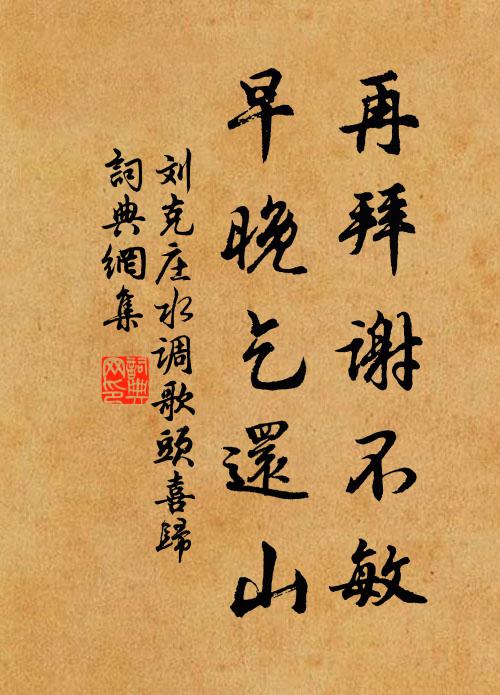 再拜谢不敏
早晚乞還山
刘克庄水调歌頭喜歸
詞典網集
詞典
网印